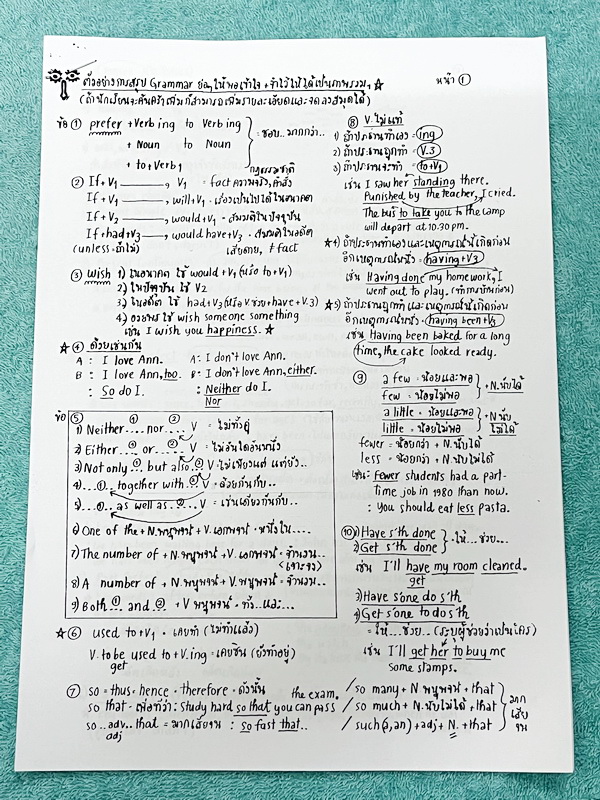 ตัวอย่างการสรุป Grammar ย่อๆ ให้พอเข้าใจ + จำไว้ให้ได้เป็นภาพรวมๆ ☆ หน้า ①
(ถ้านักเรียนจะค้นคว้าเพิ่มก็สามารถเพิ่มรายละเอียดและจดลงสมุดได้)
ข้อ ① prefer + Verb ing to Verb ing
+ Noun to Noun = ชอบ..มากกว่า..
+ to + Verb1
② If + V1 ———, V1 = fact ความจริง, คำสั่ง กฎธรรมชาติ
If + V1 ———, will + V1 = เรื่องเป็นไปได้ในอนาคต
If + V2 ———, would + V1 = สมมติในปัจจุบัน
If + had + V3 ———, would have + V3 = สมมติในอดีต
(unless = ถ้าไม่) เสียดาย, ≠ fact
③ wish 1) ในอนาคต ใช้ would + V1 (หรือ to + V1)
2) ในปัจจุบัน ใช้ V2
3) ในอดีต ใช้ had + V3 (หรือ V.ช่วย + have + V.3)
4) อวยพร ใช้ wish someone something
เช่น I wish you happiness. ☆
☆ ④ ด้วยเช่นกัน
A : I love Ann. A : I don't love Ann.
B : I love Ann, too. B : I don't love Ann, either.
: So do I. : Neither do I.
Nor
ข้อ ⑤
1) Neither ..①.. nor ..②.. V = ไม่ทั้งคู่
2) Either ..①.. or ..②.. V = ไม่อันใดอันหนึ่ง
3) Not only ..①.. but also ..②.. V = ไม่เพียงแต่ แต่ยัง..
4) ..①.. together with ..②.. V = ด้วยกันกับ..
5) ..①.. as well as ..②.. V = เช่นเดียวกันกับ..
6) One of the + N.พหูพจน์ + V.เอกพจน์ = หนึ่งใน....
7) The number of + N.พหูพจน์ + V.เอกพจน์ = จำนวน..
(เจาะจง)
8) A number of + N.พหูพจน์ + V.พหูพจน์ = จำนวน..
9) Both ..①.. and ..②.. + V พหูพจน์ = ทั้ง..และ..
☆ ⑥ used to + V1 = เคยทำ (ไม่ทำแล้ว)
V. to be used to + V.ing = เคยชิน (ยังทำอยู่)
get
⑦ so = thus = hence = therefore = ดังนั้น
so that = เพื่อที่ว่า : study hard so that you can pass the exam.
so .. adv.. that = มากเสียจน : so fast that..
adj
/ so many + N พหูพจน์ + that
/ so much + N.นับไม่ได้ + that
/ such (a, an) + adj + N. + that
มากเสียจน
⑧ V.ไม่แท้
1) ถ้าประธานทำเอง = ing
2) ถ้าประธานถูกทำ = V.3
3) ถ้าประธานจะทำ = to + V1
เช่น I saw her standing there.
Punished by the teacher, I cried.
The bus to take you to the camp
will depart at 10.30 pm.
☆ 4) ถ้าประธานทำเองและเหตุการณ์นี้เกิดก่อน
อีกเหตุการณ์หนึ่ง = having + V3
เช่น Having done my homework, I
went out to play. (ทำการบ้านก่อน)
☆ 5) ถ้าประธานถูกทำ และเหตุการณ์นี้เกิดก่อน
อีกเหตุการณ์หนึ่ง = having been + V3
เช่น Having been baked for a long
time, the cake looked ready.
⑨ a few = น้อยและพอ
few = น้อยไม่พอ + N.นับได้
a little = น้อยและพอ
little = น้อยไม่พอ + N.นับไม่ได้
fewer = น้อยกว่า + N.นับได้
less = น้อยกว่า + N.นับไม่ได้
เช่น : Fewer students had a part-
time job in 1980 than now.
: You should eat less pasta.
⑩ 1) Have s'th done
2) Get s'th done = ให้...ช่วย...
เช่น I'll have my room cleaned.
get
3) Have s'one do s'th
4) Get s'one to do s'th
= ให้...ช่วย... (ระบุผู้ช่วยว่าเป็นใคร)
เช่น I'll get her to buy me
some stamps.